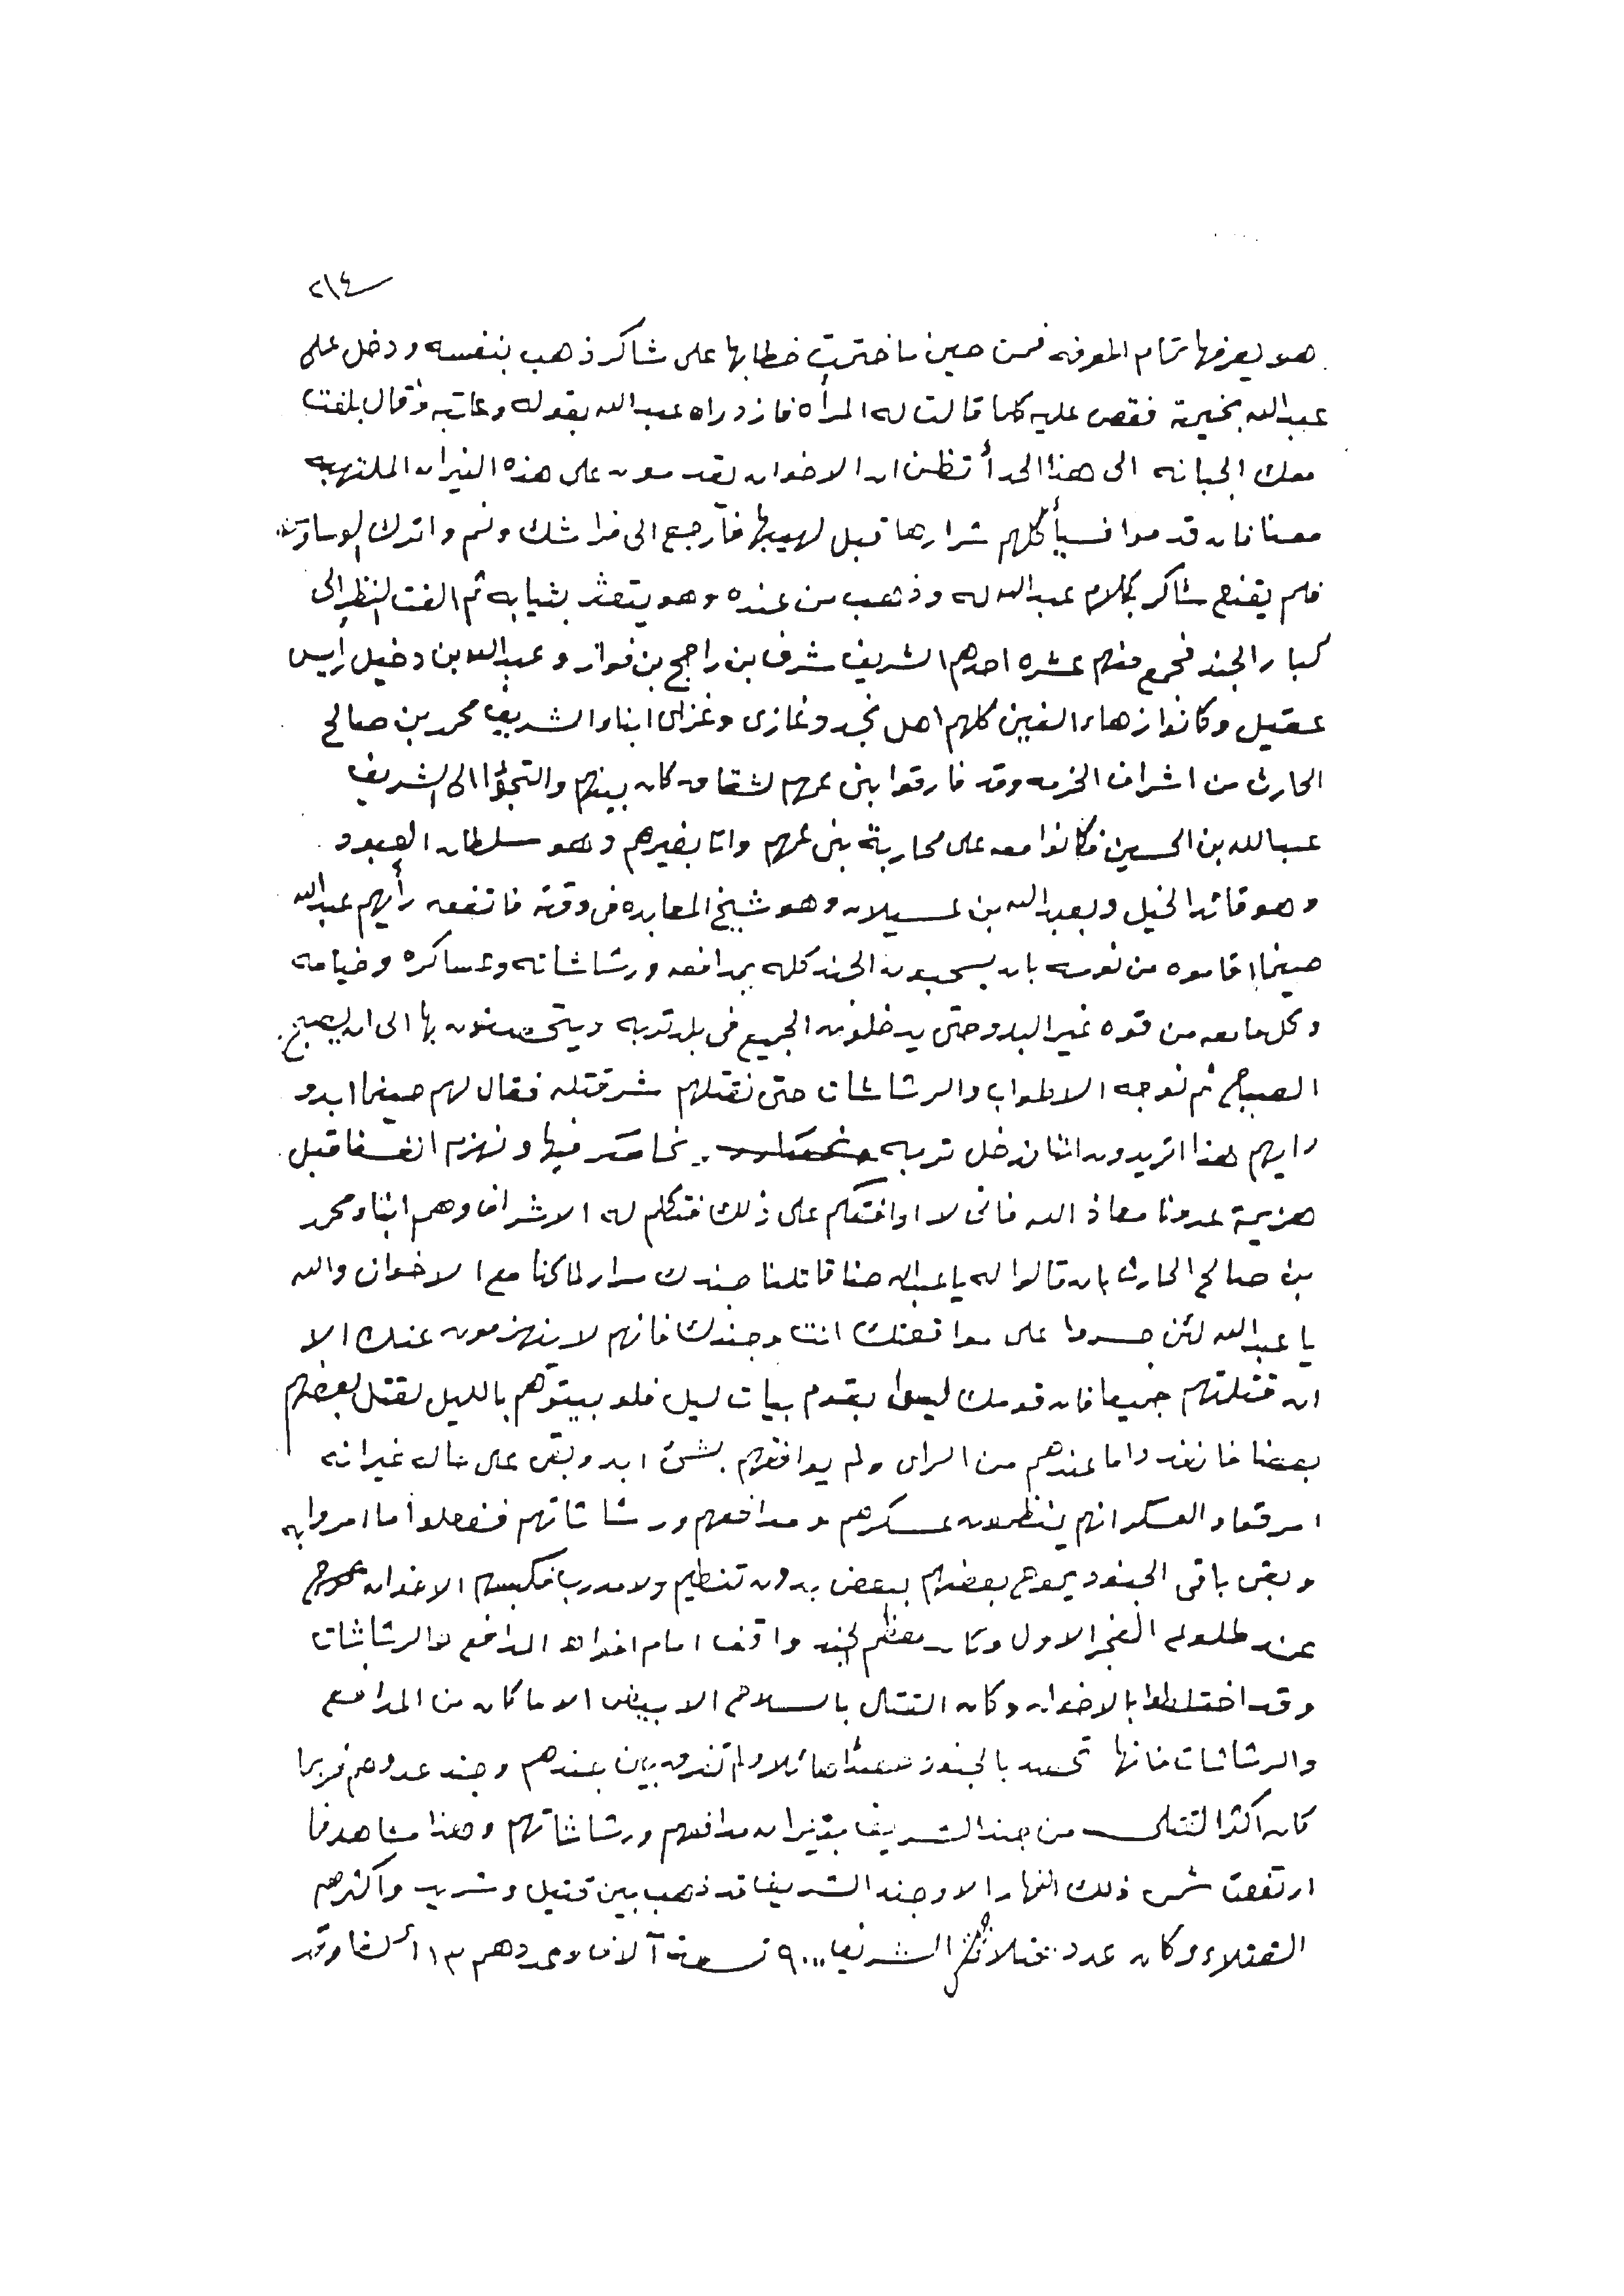 ٢١٤
هو يعرفها تمام المعرفه فمن حين ما ختمت خطابها على شاكر ذهب بنفسه ودخل على
عبدالله بخيمته فقص عليه كلما قالت له المرأه فازدراه عبدالله بقوله وعاتبه وقال بلغت
معك الجبانه الى هذا الحد أتظن ان الاخوان يقدمون على هذه النيران الملتهبه
معنا فان قدموا فسيأكلهم شرارها قبل لهيبها فارجع الى فراشك ونم واترك الوساوس
فلم يقنع شاكر بكلام عبدالله له وذهب من عنده وهو يتعثر بثيابه ثم الفت النظر الى
كبار الجند فجمع منهم عشره احدهم الشريف شرف بن راجح بن فواز وعبدالله بن دخيل رأيس
عقيل وكانوا زهاء الفين كلهم اهل نجد وغازي وغزاي ابناء الشريف محمد بن صالح
الحارث من اشراف الخرمه وقد فارقوا بني عمهم لشقاق كان بينهم والتجؤا الى الشريف
عبدالله بن الحسين فكانوا معه على محاربة بني عمهم واتا بغيرهم وهو سلطان العبود
وهو قائد الخيل وبعبدالله بن عسيلان وهو شيخ المعابده في وقته فاتفق رأيهم عبدالله
حينما اقاموه من نومه بان يسحبون الجند كله بمدافعه ورشاشاته وعساكره وخيامه
وكل ما معه من قوه غير البدو حتى يدخلون الجميع في بلد تربه ويتحصنون بها الى ان يصبح
الصباح ثم نوجه الاطواب والرشاشات حتى نقتلهم شر قتله فقال لهم حينما ابدو
رايهم هذا اتريدون اننا ندخل تربه نحاصر فيها ونهزم انفسنا قبل
هزيمة عدونا معاذ الله فاني لا اوافقكم على ذلك فتكلم له الاشراف وهم ابناء محمد
بن صالح الحارث بان قالوا له يا عبدالله حنا قاتلنا جندك مرار لما كنا مع الاخوان والله
يا عبدالله لئن جسروا على مواقعتك انت وجندك فانهم لا ينهزمون عنك الا
ان قتلتهم جميعا فان قومك ليسوا بقوم بيات ليل فلو بيتوهم بالليل لقتل بعضهم
بعضا فانفدوا ما عندهم من الراى ولم يوافقهم بشئ ابد وبقي على حاله غير انه
امر قواد العسكر انهم ينظمون عسكرهم ومدافعهم ورشاشاتهم ففعلوا ما امروا به
وبقي باقي الجنود يموج بعضهم ببعض بدون تنظيم ولا مدرب فكبسهم الاخوان
عند طلوع الفجر الاول وكان معظم الجند واقف امام افواه المدافع والرشاشات
وقد اختلطوا بالاخوان وكان القتال بالسلاح الابيض الا ما كان من المدافع
والرشاشات فانها تحصد بالجنود حصدا هائلا ولم تفرق بين جندهم وجند عدوهم فربما
كان اكثر القتلى من جند الشريف بنيران مدافعهم ورشاشاتهم وهذا مشاهد فما
ارتفعت شمس ذلك النهار الا وجند الشريف قد ذهب بين قتيل وشريد واكثرهم
القتلاء وكان عدد الشريف ٩٠٠٠ تسعة آلاف وعددهم ١٣ ألف وقد